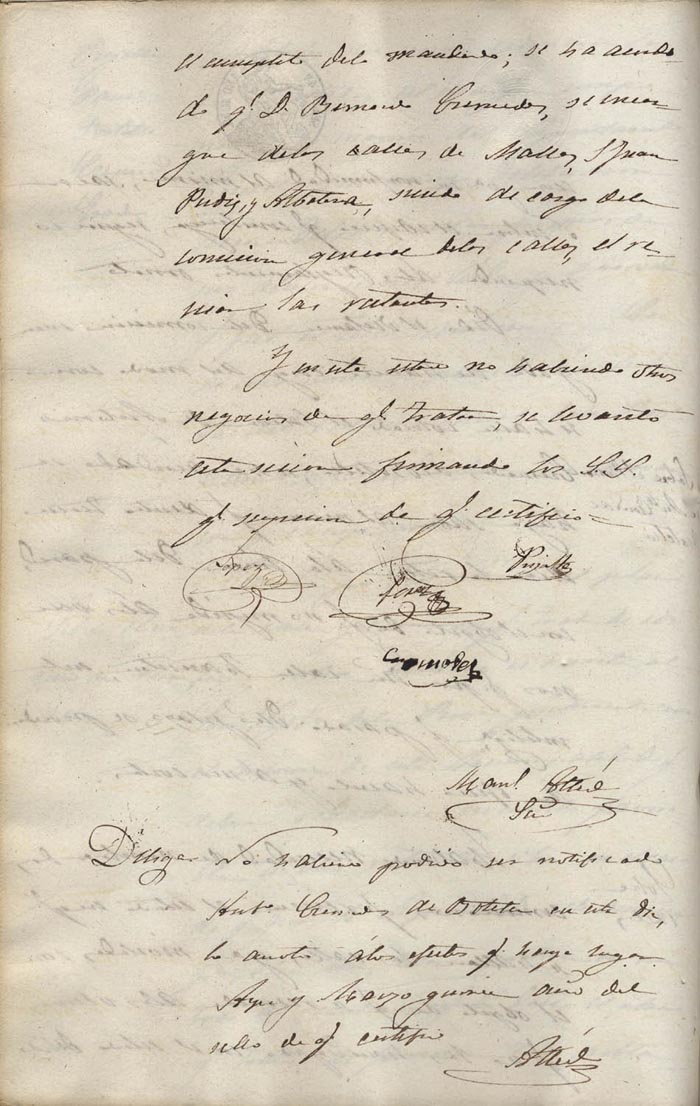 el cumplito dela mandado; se ha acorda
do qᵉ D. Bernardo Cremades, se encar
gue delas calles de Mallas, S. Juan
Pudis, y Albatera, siendo de cargo dela
comision general delas calles, el re-
sion las restantes.
Y en este estado no habiendo otros
negocios de qᵉ tratar, se levantó
esta sesion firmando los S.S.
qᵉ supieron de qᵉ certifico=
Lopez
Lopez
Cremades
Manl.
Srio
Diliga No habiendo podido ser notificado
Antº Cremades de Botella en este dia,
lo anoto álos efectos qᵉ haya lugar.
Aspe y Marzo quince año del
sello de qᵉ certifico